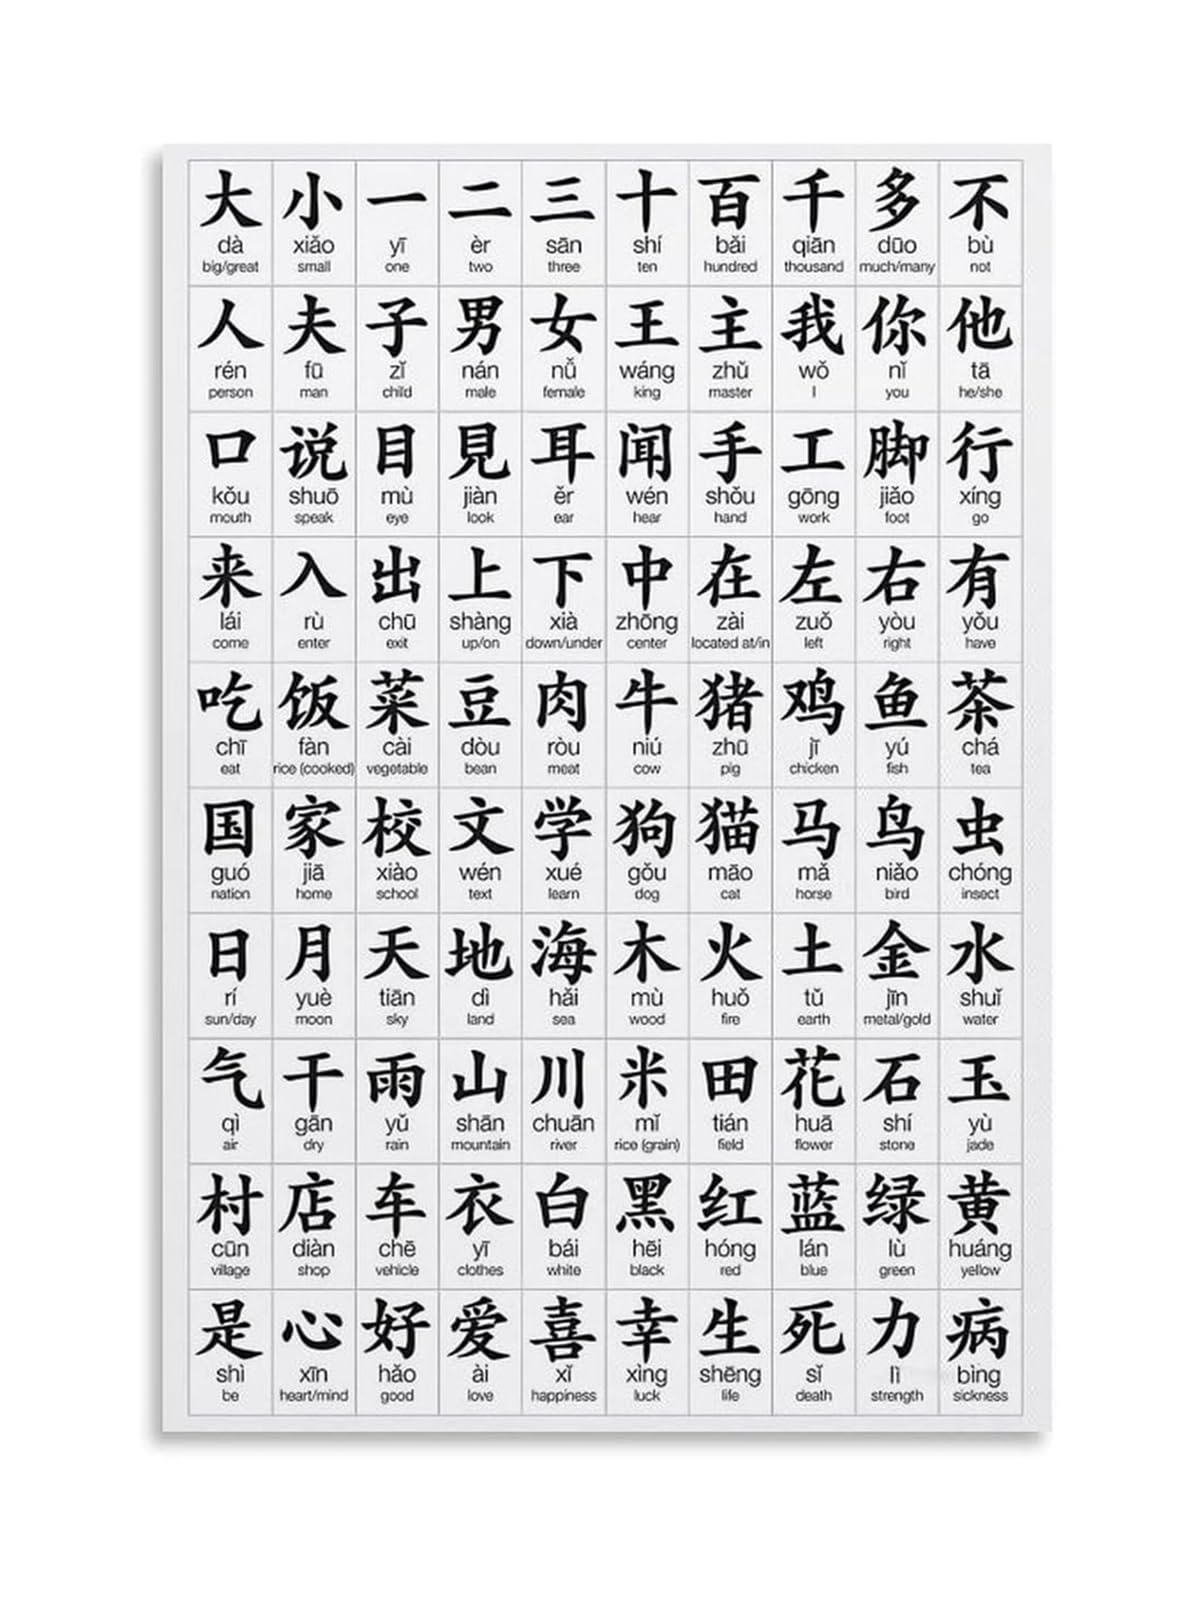 大 小 一 二 三 十 百 千 多 不
dà xiǎo yī èr sān shí bǎi qiān dūo bù
big/great small one two three ten hundred thousand much/many not
人 夫 子 男 女 王 主 我 你 他
rén fū zǐ nán nǚ wáng zhǔ wǒ nǐ tā
person man child male female king master I you he/she
口 说 目 見 耳 闻 手 工 脚 行
kǒu shuō mù jiàn ěr wén shǒu gōng jiǎo xíng
mouth speak eye look ear hear hand work foot go
来 入 出 上 下 中 在 左 右 有
lái rù chū shàng xià zhōng zài zuǒ yòu yǒu
come enter exit up/on down/under center located at/in left right have
吃 饭 菜 豆 肉 牛 猪 鸡 鱼 茶
chī fàn cài dòu ròu niú zhū jī yú chá
eat rice (cooked) vegetable bean meat cow pig chicken fish tea
国 家 校 文 学 狗 猫 马 鸟 虫
guó jiā xiào wén xué gǒu māo mǎ niǎo chóng
nation home school text learn dog cat horse bird insect
日 月 天 地 海 木 火 土 金 水
rí yuè tiān dì hǎi mù huǒ tǔ jīn shuǐ
sun/day moon sky land sea wood fire earth metal/gold water
气 干 雨 山 川 米 田 花 石 玉
qì gān yǔ shān chuān mǐ tián huā shí yù
air dry rain mountain river rice (grain) field flower stone jade
村 店 车 衣 白 黑 红 蓝 绿 黄
cūn diàn chē yī bái hēi hóng lán lù huáng
village shop vehicle clothes white black red blue green yellow
是 心 好 爱 喜 幸 生 死 力 病
shì xīn hǎo ài xǐ xìng shēng sǐ lì bìng
be heart/mind good love happiness luck life death strength sickness